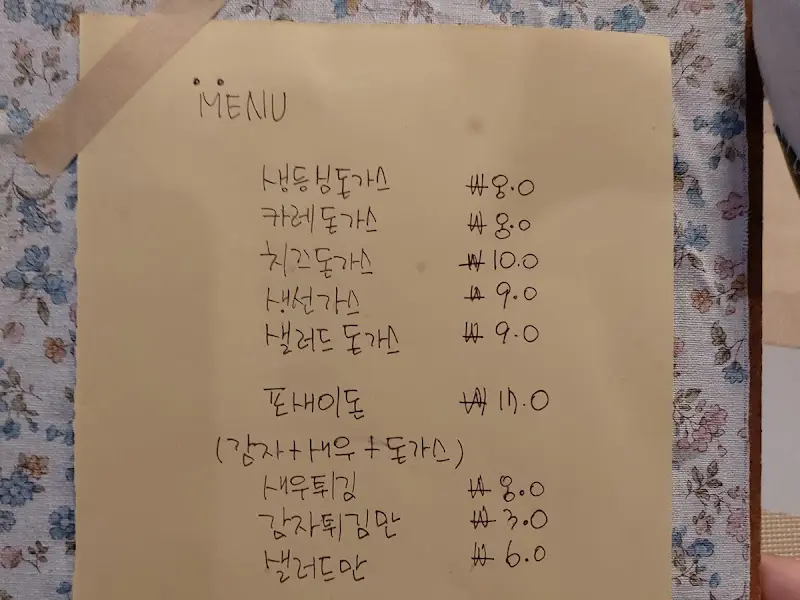 MENU
생등심돈가스 ₩8.0
카레돈가스 ₩8.0
치즈돈가스 ₩10.0
생선가스 ₩9.0
샐러드돈가스 ₩9.0
포새이돈 ₩17.0
(감자+새우+돈가스)
새우튀김 ₩8.0
감자튀김만 ₩3.0
샐러드만 ₩6.0